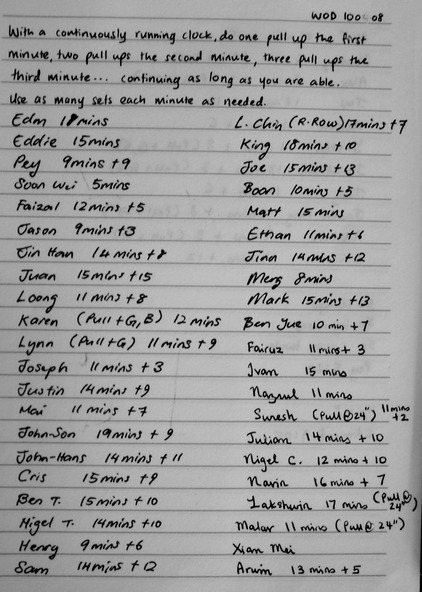 WOD 100 08
With a continuously running clock, do one pull up the first
minute, two pull ups the second minute, three pull ups the
third minute... continuing as long as you are able.
Use as many sets each minute as needed.
Edm mins
Eddie 15mins
Pey 9mins +9
Soon Wei 5mins
Faizal 12mins +5
Jason 9mins +3
Jin Han 14mins +8
Juan 15mins +15
Loong 11mins +8
Karen (Pull+G, B) 12 mins
Lynn (Pull+G) 11mins +9
Joseph 11mins +3
Justin 14mins +9
Mai 11mins +7
John-Son 19mins +9
John-Hans 14mins +11
Cris 15mins +9
Ben T. 15mins +10
Nigel T. 14mins +10
Henry 9mins +6
Sam 14mins +12
L. Chin (R.ROW) 17mins +7
King 18mins +10
Joe 15mins +13
Boon 10mins +5
Matt 15 mins
Ethan 11mins +6
Jinn 14mins +12
Merz 8mins
Mark 15mins +13
Ben Yue 10 min +7
Fairuz 11mins + 3
Ivan 15 mins
Nazrul 11 mins
Suresh (Pull@24") 11mins +2
Julian 14 mins + 10
Nigel C. 12 mins + 10
Navin 16 mins + 7
Lakshwin 17 mins (Pull@ 24")
Malar 11 mins (Pull@ 24")
Xian Mei
Arwin 13 mins + 5